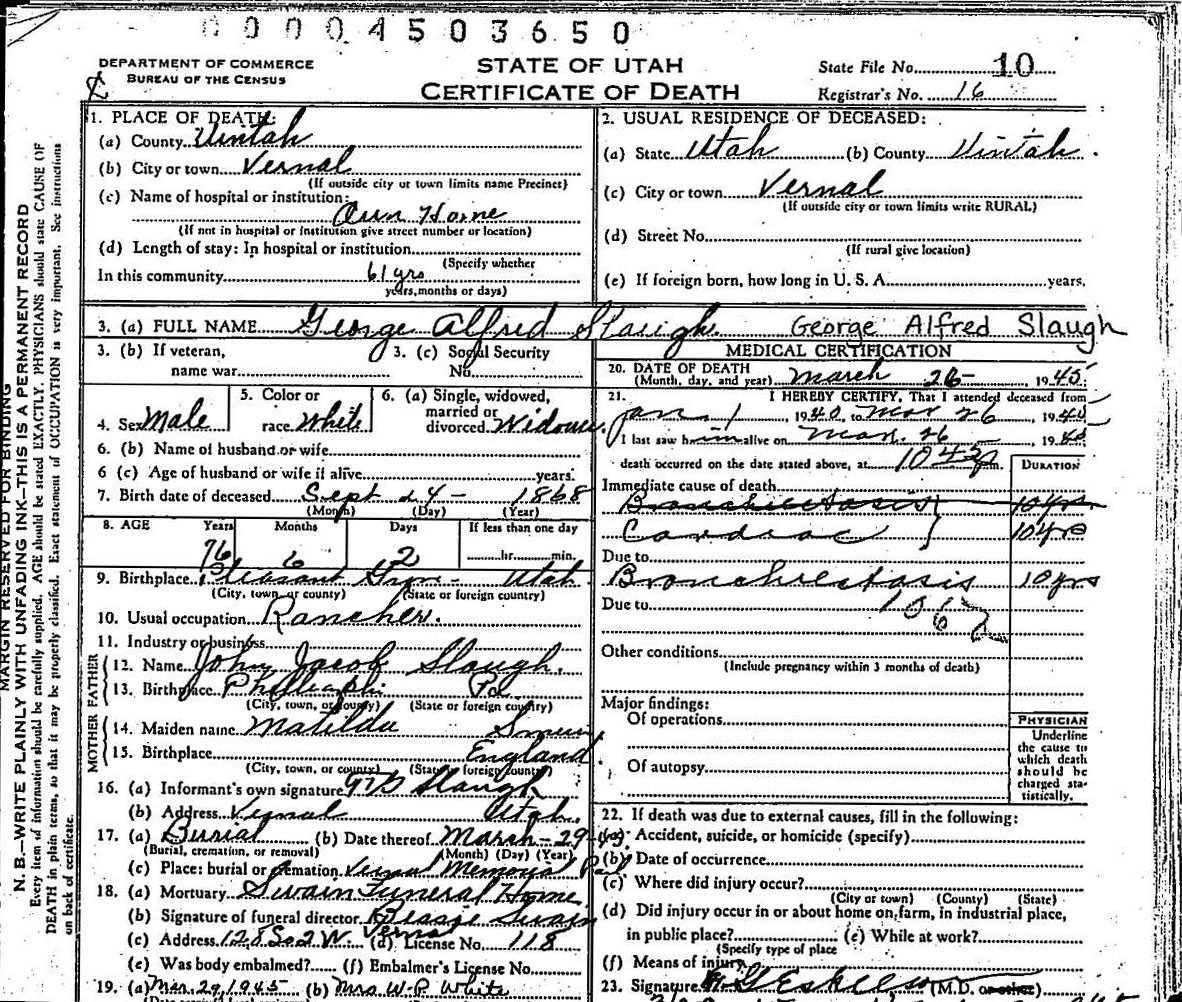 00004503650
DEPARTMENT OF COMMERCE
BUREAU OF THE CENSUS
STATE OF UTAH
CERTIFICATE OF DEATH
State File No. 10
Registrar's No. 16
MARGIN RESERVED FOR BINDING
N. B.—WRITE PLAINLY WITH UNFADING INK—THIS IS A PERMANENT RECORD
Every item of information should be carefully supplied. AGE should be stated EXACTLY. PHYSICIANS should state CAUSE OF
DEATH in plain terms, so that it may be properly classified. Exact statement of OCCUPATION is very important. See instructions
on back of certificate.
1. PLACE OF DEATH:
(a) County Uintah
(b) City or town Vernal
(If outside city or town limits name Precinct)
(c) Name of hospital or institution:
Own Home
(If not in hospital or institution give street number or location)
(d) Length of stay: In hospital or institution
(Specify whether
In this community 61 yrs
years, months or days)
2. USUAL RESIDENCE OF DECEASED:
(a) State Utah (b) County Uintah
(c) City or town Vernal
(If outside city or town limits write RURAL)
(d) Street No.
(If rural give location)
(e) If foreign born, how long in U. S. A. years.
3. (a) FULL NAME George Alfred Slaugh. George Alfred Slaugh
3. (b) If veteran, name war
3. (c) Social Security No.
4. Sex Male
5. Color or race White
6. (a) Single, widowed, married or divorced Widower
6. (b) Name of husband or wife
6 (c) Age of husband or wife if alive years.
7. Birth date of deceased Sept 24 - 1868
(Month) (Day) (Year)
8. AGE Years Months Days If less than one day
76 6 2 hr. min.
9. Birthplace Pleasant Grove - Utah
(City, town, or county) (State or foreign country)
10. Usual occupation Rancher.
11. Industry or business
FATHER
12. Name John Jacob Slaugh.
13. Birthplace Pa
(City, town, or county) (State or foreign country)
MOTHER
14. Maiden name Matilda
15. Birthplace England
(City, town, or county) (State or foreign country)
16. (a) Informant's own signature Slaugh
(b) Address Vernal Utah.
17. (a) Burial (b) Date thereof March - 29 - 45
(Burial, cremation, or removal) (Month) (Day) (Year)
(c) Place: burial or cremation Vernal Memorial Park
18. (a) Mortuary Swain Funeral Home
(b) Signature of funeral director Bessie Swain
(c) Address 128 So 2 W. Vernal (d) License No. 118
(e) Was body embalmed? (f) Embalmer's License No.
19. (a) Mar. 29, 1945 (b) Mrs W. P. White
MEDICAL CERTIFICATION
20. DATE OF DEATH
(Month, day, and year) March 26 - , 1945
21. I HEREBY CERTIFY, That I attended deceased from
Jan. 1 , 1940, to Mar 26 , 1940
I last saw him alive on Mar. 26 , 1940
death occurred on the date stated above, at 10 42 p m.
DURATION
Immediate cause of death
Bronchiectasis 10 yrs
Cardiac 10 yrs
Due to
Bronchiectasis 10 yrs
Due to 106
Other conditions
(Include pregnancy within 3 months of death)
Major findings:
Of operations
Of autopsy
PHYSICIAN
Underline
the cause to
which death
should be
charged sta-
tistically.
22. If death was due to external causes, fill in the following:
(a) Accident, suicide, or homicide (specify)
(b) Date of occurrence
(c) Where did injury occur?
(City or town) (County) (State)
(d) Did injury occur in or about home on farm, in industrial place,
in public place? (e) While at work?
(Specify type of place
(f) Means of injury
23. Signature (M.D. or other)